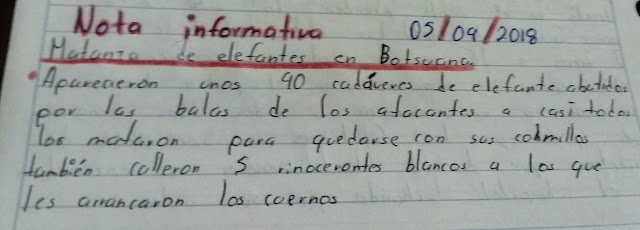 Nota informativa 05/09/2018
Matanza de elefantes en Botsuana.
Aparecieron unos 90 cadáveres de elefante abatidos
por las balas de los atacantes a casi todos
los mataron para quedarse con sus colmillos
también calleron 5 rinocerontes blancos a los que
les arrancaron los cuernos